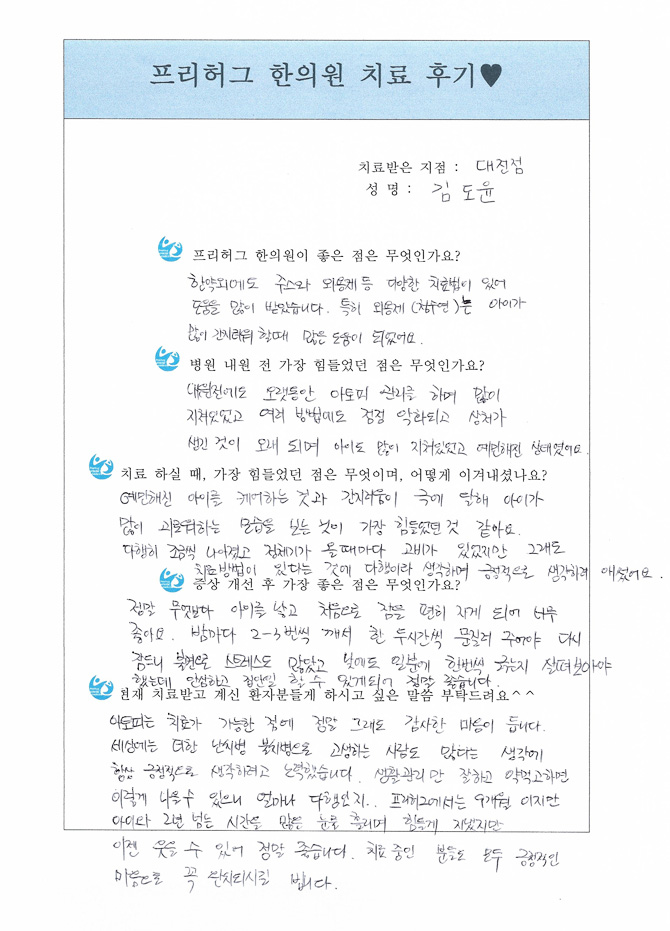 프리허그 한의원 치료 후기♥
치료받은 지점 : 대전점
성 명 : 김 도윤
프리허그 한의원이 좋은 점은 무엇인가요?
한약외에도 주스와 외용제 등 다양한 치료법이 있어
도움을 많이 받았습니다. 특히 외용제 는 아이가
많이 간지러워 할때 많은 도움이 되었어요.
병원 내원 전 가장 힘들었던 점은 무엇인가요?
내원전에도 오랫동안 아토피 관리를 하며 많이
지쳐있었고 여러 방법에도 점점 악화되고 상처가
생긴 것이 오래 되며 아이도 많이 지쳐있었고 예민해진 상태였어요.
치료 하실 때, 가장 힘들었던 점은 무엇이며, 어떻게 이겨내셨나요?
예민해진 아이를 케어하는 것과 간지러움이 극에 달해 아이가
많이 괴로워하는 모습을 보는 것이 가장 힘들었던 것 같아요.
다행히 조금씩 나아졌고 정체기가 올때마다 고비가 있었지만 그래도
치료방법이 있다는 것에 다행이라 생각하며 긍정적으로 생각하려 애썼어요.
증상 개선 후 가장 좋은 점은 무엇인가요?
정말 무엇보다 아이를 낳고 처음으로 잠을 편히 자게 되어 너무
좋아요. 밤마다 2-3번씩 깨서 한 두시간씩 문질러 주어야 다시
잠드니 스트레스도 많았고 낮에도 일분에 한번씩 긁는지 살펴보아야
했는데 안심하고 집안일 할 수 있게되어 정말 좋습니다.
현재 치료받고 계신 환자분들게 하시고 싶은 말씀 부탁드려요^^
아토피는 치료가 가능한 점에 정말 그래도 감사한 마음이 듭니다.
세상에는 더한 난치병 불치병으로 고생하는 사람도 많다는 생각에
항상 긍정적으로 생각하려고 노력했습니다. 생활관리만 잘하고 약먹고하면
이렇게 나을수 있으니 얼마나 다행인지.. 프리허그에서는 9개월 이지만
아이와 2년 넘는 시간을 많은 눈물 흘리며 힘들게 지냈지만
이젠 웃을 수 있어 정말 좋습니다. 치료 중인 분들도 모두 긍정적인
마음으로 꼭 완치되시길 빕니다.